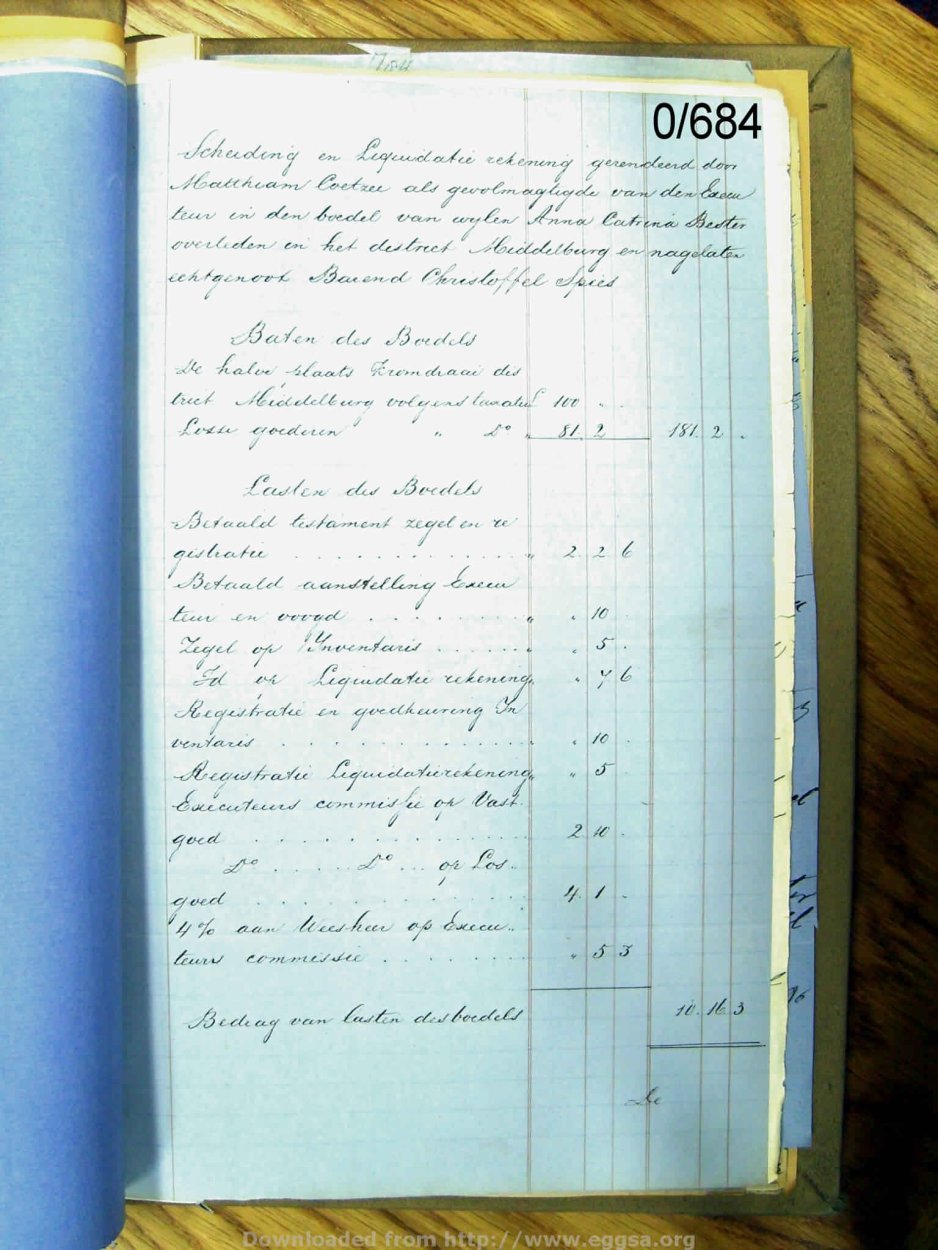 0/684
Scheiding en Liquidatie rekening gerendeerd door
Matthiam Coetzee als gevolmagtigde van den Execu
teur in den boedel van wylen Anna Catrina Bester
overleden in het district Middelburg en nagelaten
echtgenoot Barend Christoffel Spies
Baten des Boedels
De halve plaats Kromdraai dis
trict Middelburg volgens taxatie £ 100 " .
Losse goederen " Do " 81. 2 181. 2 "
Lasten des Boedels
Betaald testament zegel en re
gistratie . . . . . . . . . . . . . " 2. 2 6
Betaald aanstelling Execu
teur en voogd . . . . . . . . " " 10 .
Zegel op Inventaris . . . . . . " " 5 .
Id op Liquidatie rekening " " 7 6
Registratie en goedkeuring In
ventaris . . . . . . . . . . . . " " 10 .
Registratie Liquidatierekening " " 5
Executeurs commissie op Vast
goed . . . . . . . . . . . . . . 2. 10 .
Do . . . . . Do ... op Los..
goed . . . . . . . . . . . . . . 4. 1 .
4% aan Weesheer op Execu..
teurs commissie . . . . . . . . " 5 3
Bedrag van lasten des boedels 10. 16. 3
De
Downloaded from http://www.eggsa.org